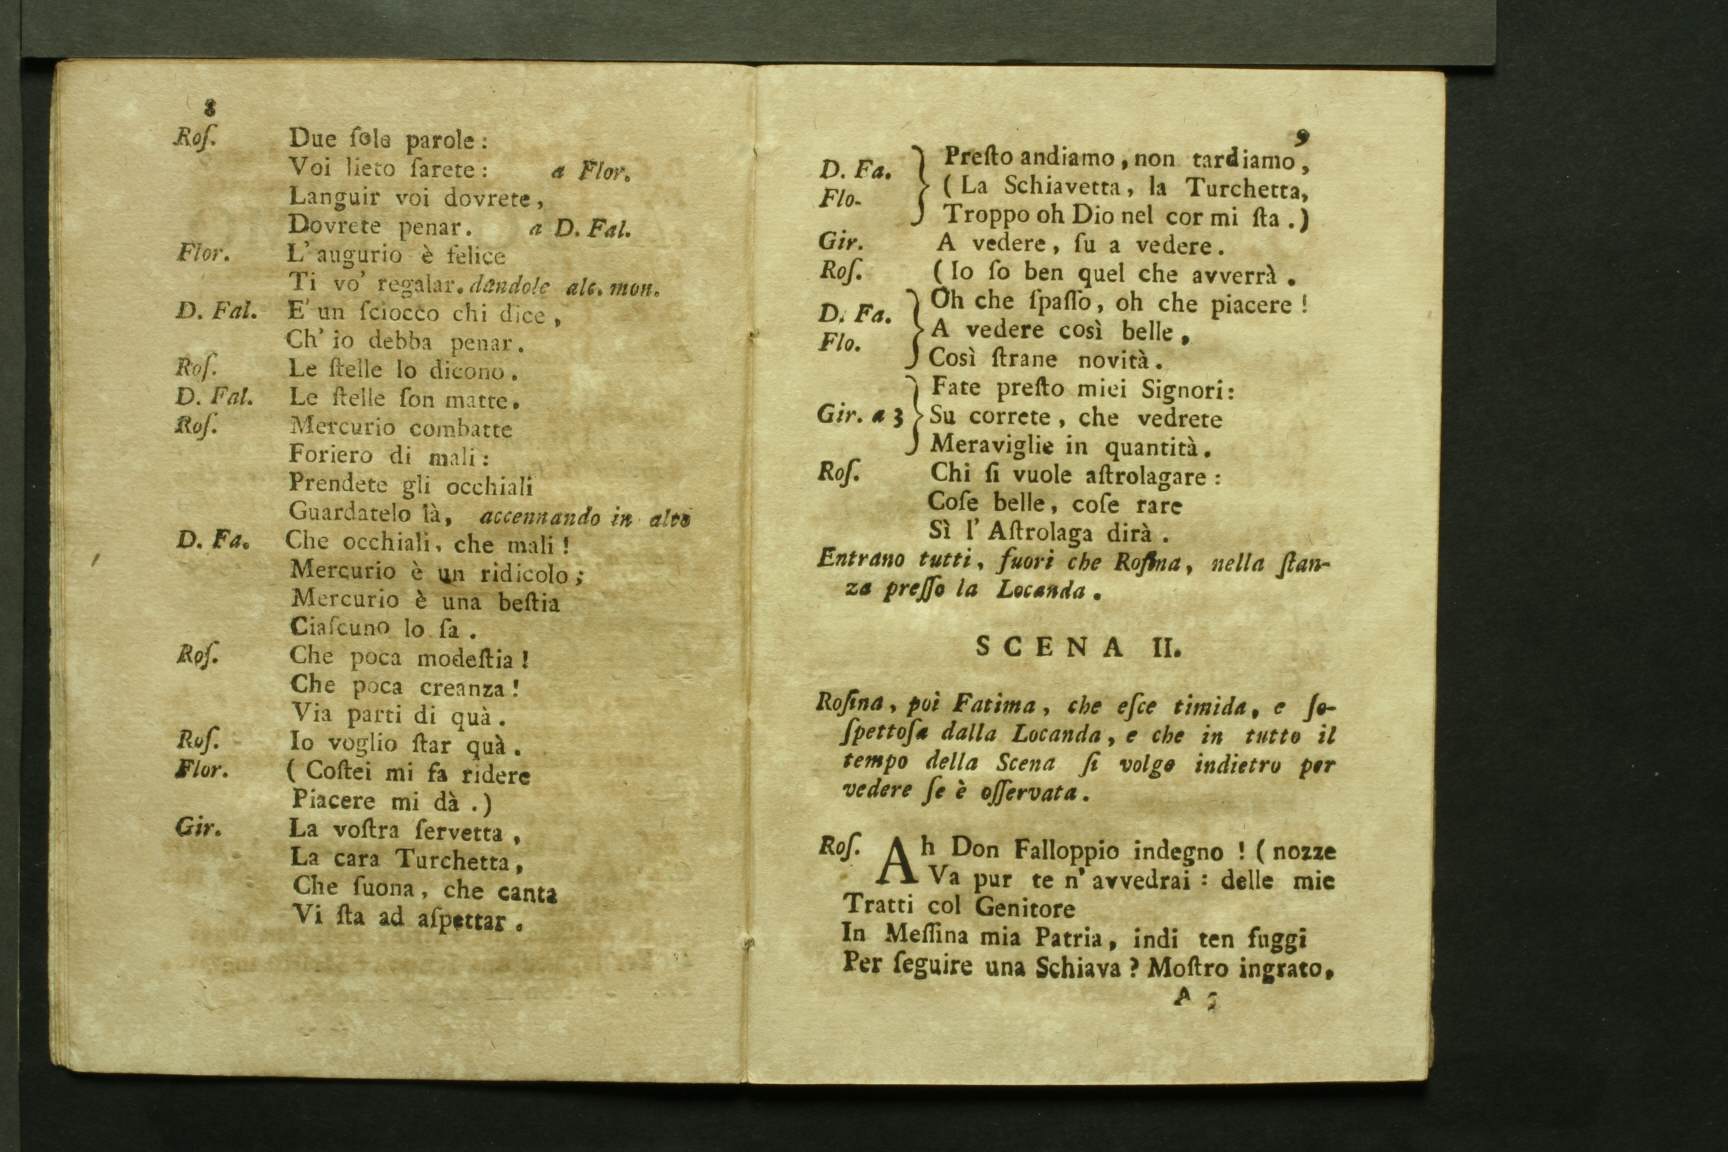 8
Roſ. Due ſole parole:
Voi lieto ſarete: a Flor.
Languir voi dovrete,
Dovrete penar. a D. Fal.
Flor. L'augurio è felice
Ti vo' regalar. dandole alc. mon.
D. Fal. E' un ſciocco chi dice,
Ch' io debba penar.
Roſ. Le ſtelle lo dicono.
D. Fal. Le ſtelle ſon matte.
Roſ. Mercurio combatte
Foriero di mali:
Prendete gli occhiali
Guardatelo là, accennando in alto
D. Fa. Che occhiali, che mali!
Mercurio è un ridicolo;
Mercurio è una beſtia
Ciaſcuno lo ſa.
Roſ. Che poca modeſtia!
Che poca creanza!
Via parti di quà.
Roſ. Io voglio ſtar quà.
Flor. (Coſtei mi fa ridere
Piacere mi dà.)
Gir. La voſtra ſervetta,
La cara Turchetta,
Che ſuona, che canta
Vi ſta ad aſpettar.
9
D. Fa. } Preſto andiamo, non tardiamo,
Flo- (La Schiavetta, la Turchetta,
Troppo oh Dio nel cor mi ſta.)
Gir. A vedere, ſu a vedere.
Roſ. (Io ſo ben quel che avverrà.
D. Fa. } Oh che ſpaſſo, oh che piacere!
Flo. A vedere così belle,
Così ſtrane novità.
Fate preſto miei Signori:
Gir. a 3 } Su correte, che vedrete
Meraviglie in quantità.
Roſ. Chi ſi vuole aſtrolagare:
Coſe belle, coſe rare
Sì l' Aſtrolaga dirà.
Entrano tutti, fuori che Roſina, nella ſtan-
za preſſo la Locanda.
SCENA II.
Roſina, poi Fatima, che eſce timida, e ſo-
ſpettoſa dalla Locanda, e che in tutto il
tempo della Scena ſi volge indietro per
vedere ſe è oſſervata.
Roſ. Ah Don Falloppio indegno! (nozze
Va pur te n'avvedrai: delle mie
Tratti col Genitore
In Meſſina mia Patria, indi ten fuggi
Per ſeguire una Schiava? Moſtro ingrato,
A 5